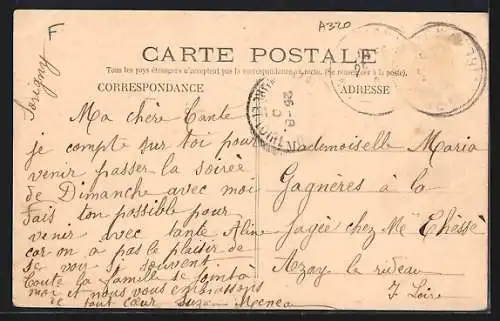 F
A320
Sorigny
CARTE POSTALE
Tous les pays étrangers n'acceptent pas la correspondance au recto. (Se renseigner à la poste).
CORRESPONDANCE
ADRESSE
26-8
Ma chère Tante
je compte sur toi pour
venir passer la soirée
de Dimanche avec moi
fais ton possible pour
venir avec tante Aline
car on a pas le plaisir de
se voir si souvent.
Toute la famille se joint à
moi et nous vous embrassons
de tout cœur Suzan
Mademoiselle Maria
Gagnères à la
chez Me
Azay le rideau
I. Loire